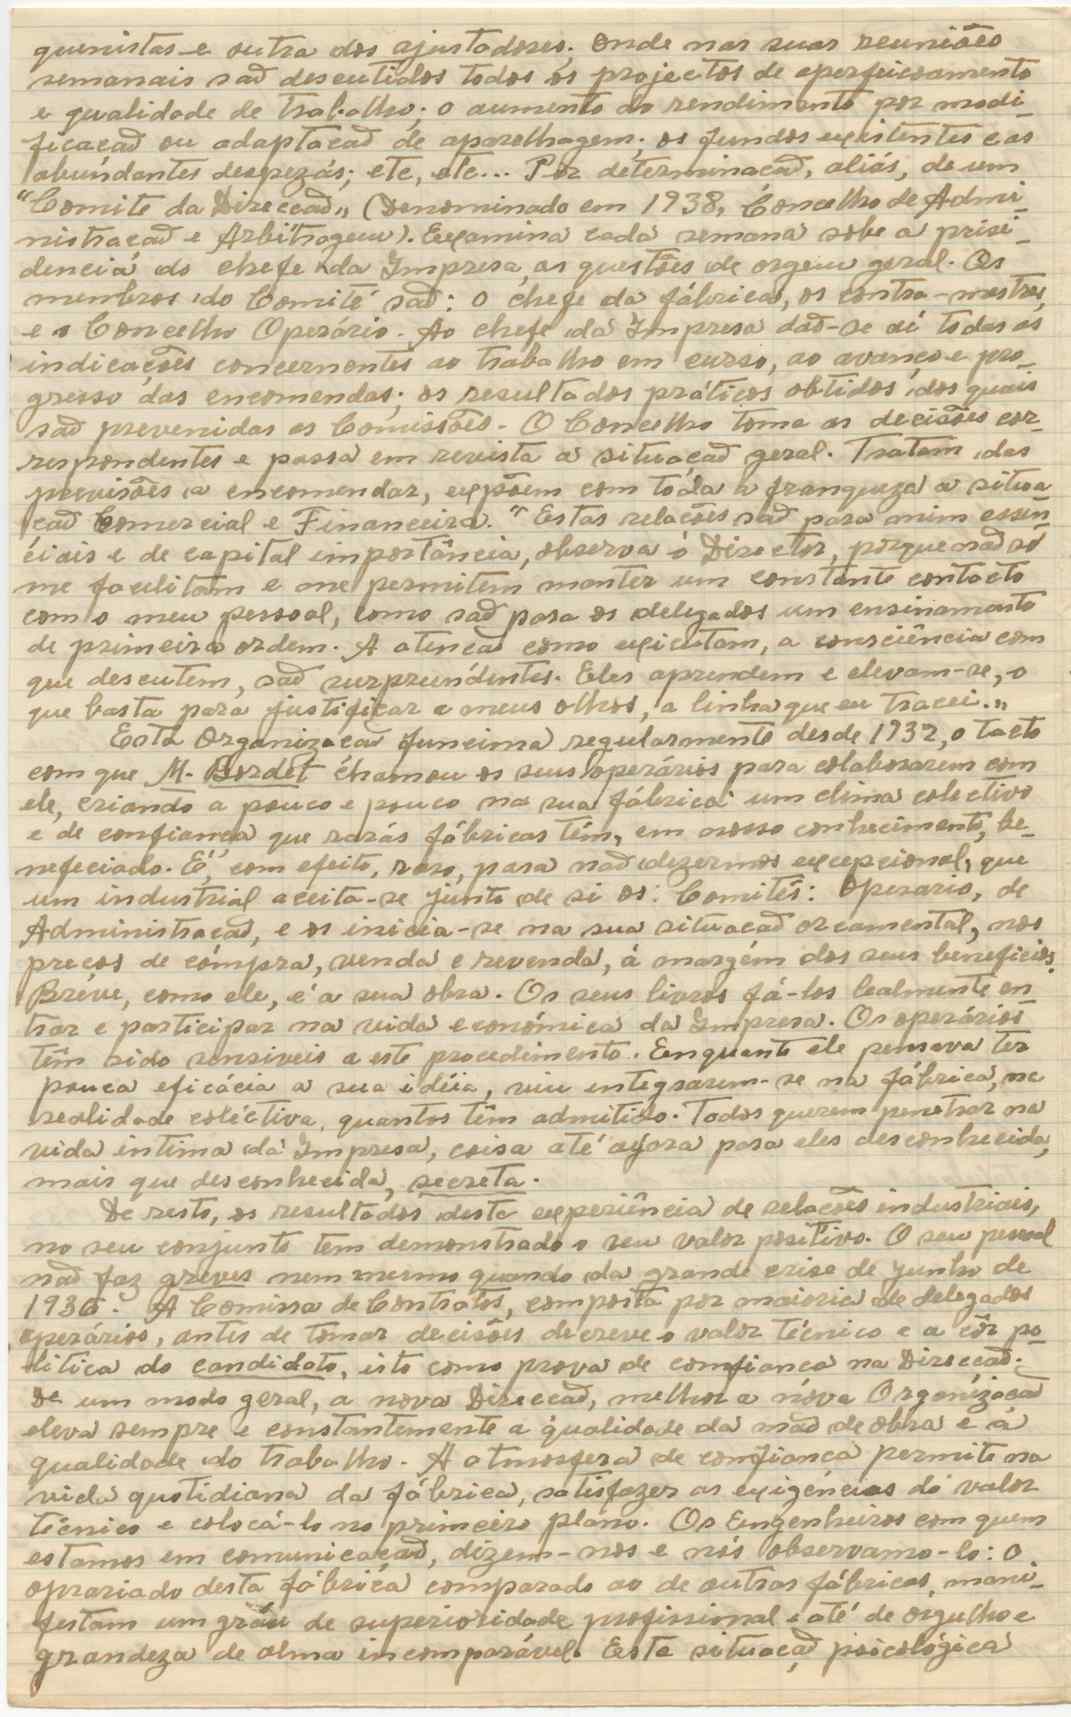 quinistas e outra dos ajustadores. Onde nas suas reuniões
semanais saõ descutidos todos ós projectos de aperfeicoamento
e qualidade de trabalho; o aumento do rendimento por modi-
ficaçaõ ou adaptacaõ de aparelhagem; os fundos existentes e as
abundantes despezás; etc, etc... Por determinacaõ, aliás, de um
"Comite da Direccaõ„ (Denominado em 1938, Concelho de Admi-
nistracaõ e Arbitragem). Examina cada semana sobe a prisi-
dencia do chefe da Impresa, as questões de orgem geral. Os
membros do Comité saõ: o chefe da fábrica, os contra-mestres,
e o Concelho Operário. Ao chefe da Impresa daõ-se aí todas as
indicações concernentes ao trabalho em curso, ao avanço e pro-
gresso das encomendas; os resultados práticos obtidos, dos quais
saõ prevenidas as Comissões. O Concelho toma as decisões cor-
respondentes e passa em revista a situaçaõ geral. Tratam das
previsões a encomendar, expõem com toda a franqueza a situa
caõ Comercial e Financeira. "Estas relações saõ para mim essen-
ciais e de capital importância, observa o Director, porque naõ só
me facilitam e me permitem manter um constante contacto
com o meu pessoal, como saõ para os delegados um ensinamento
de primeira ordem. A atencaõ como exicutam, a consciência com
que descutem, saõ surpreendentes. Eles aprendem e elevam-se, o
que basta para justificar a meus olhos, a linha que eu tracei.„
Esta Organizacaõ funciona regularmente desde 1932, o tacto
com que M. Bordet chamou os seus operários para colaborarem com
ele, criando a pouco e pouco na sua fábrica um clima colectivo
e de confianca que rarás fábricas têm, em nosso conhecimento, be-
nefeciado. É, com efeito, raro, para naõ dizermos excepcional, que
um industrial aceita-se junto de si os: Comités: Operario, de
Administraçaõ, e os inicia-se na sua situacaõ orcamental, nos
precos de cómpra, venda e revenda, á margém dos seus beneficios.
Bréve, como ele, é a sua obra. Os seus livros fá-los lealmente en
trar e participar na vida económica da Impresa. Os operários
têm sido sensiveis a este procedimento. Enquanto ele pensava ter
pouca eficácia a sua idéia, viu integrarem-se na fábrica, na
realidade coléctiva, quantos têm admitido. Todos querem penetrar na
vida intima da Impresa, coisa até agora para eles desconhecida,
mais que desconhecida, secreta.
De resto, os resultados desta experiência de relações industriais,
no seu conjunto tem demonstrado o seu valor positivo. O seu pessoal
naõ faz gréves nem mesmo quando da grande crise de junho de
1936. A Comissa de Contratos, composta por maioria de delegados
operários, antes de tomar decisões descreve o valor técnico e a côr po-
litica do candidato, isto como prova de comfianca na Direccaõ.
De um modo geral, a nova Direccaõ, melhor a nóva Organizaçaõ
eleva sempre e constantemente a qualidade da maõ de obra e á
qualidade do trabalho. A atmosfera de confiança permite na
vida quotidiana da fábrica, satisfazer as exigências do valor
técnico e colocá-lo no primeiro pláno. Os Engenheiros com quem
estamos em comunicacaõ, dizem-nos e nós observamo-lo: o
oprariado desta fábrica comparado ao de outras fábricas, mani-
festam um gráu de superioridade profissional e até de orgulho e
grandeza de alma incomparável. Esta situacaõ psicológica